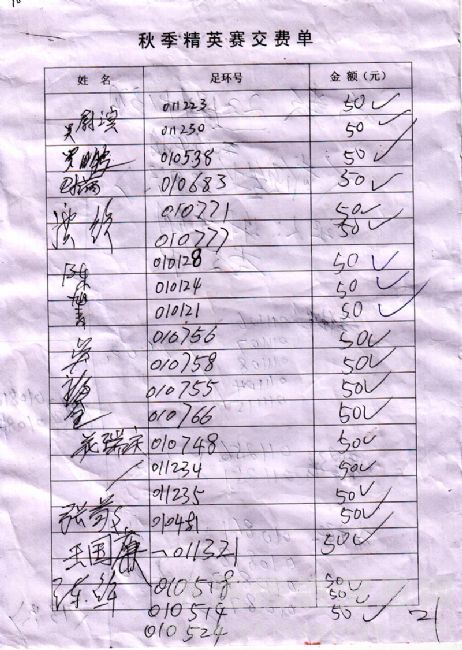 秋季精英赛交费单
姓 名 足环号 金 额(元)
011223 50 ✓
011230 50 ✓
010538 50 ✓
010683 50 ✓
010771 50 ✓
010777 50 ✓
陈 010128 50 ✓
010124 50 ✓
010121 50 ✓
吴 010756 50 ✓
010758 50 ✓
010755 50 ✓
010766 50 ✓
花瑞庆 010748 50 ✓
011234 50 ✓
011235 50 ✓
张 010481 50 ✓
王国康 011321 50 ✓
010518 50 ✓
010514 50 ✓
010524 50 ✓ 21